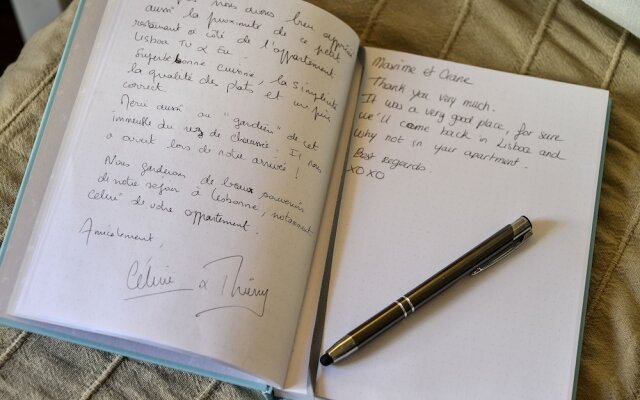 nous avons bien apprécié
aussi la proximité de ce petit
restaurant à côté de l'appartement
Lisboa Tu & Eu.
Superbe bonne cuisine, la simplicité
la qualité des plats et un prix
correct.
Merci aussi au "gardien" de cet
immeuble du rez de chaussée. Il nous
a ouvert lors de notre arrivée !
Nous garderons de beaux souvenirs
de notre séjour à Lisbonne, notamment
celui de votre appartement.
Amicalement,
Céline & Thierry
Maxime et Orane
Thank you very much.
It was a very good place, for sure
we'll come back in Lisboa and
why not in your apartment.
Best regards
XOXO